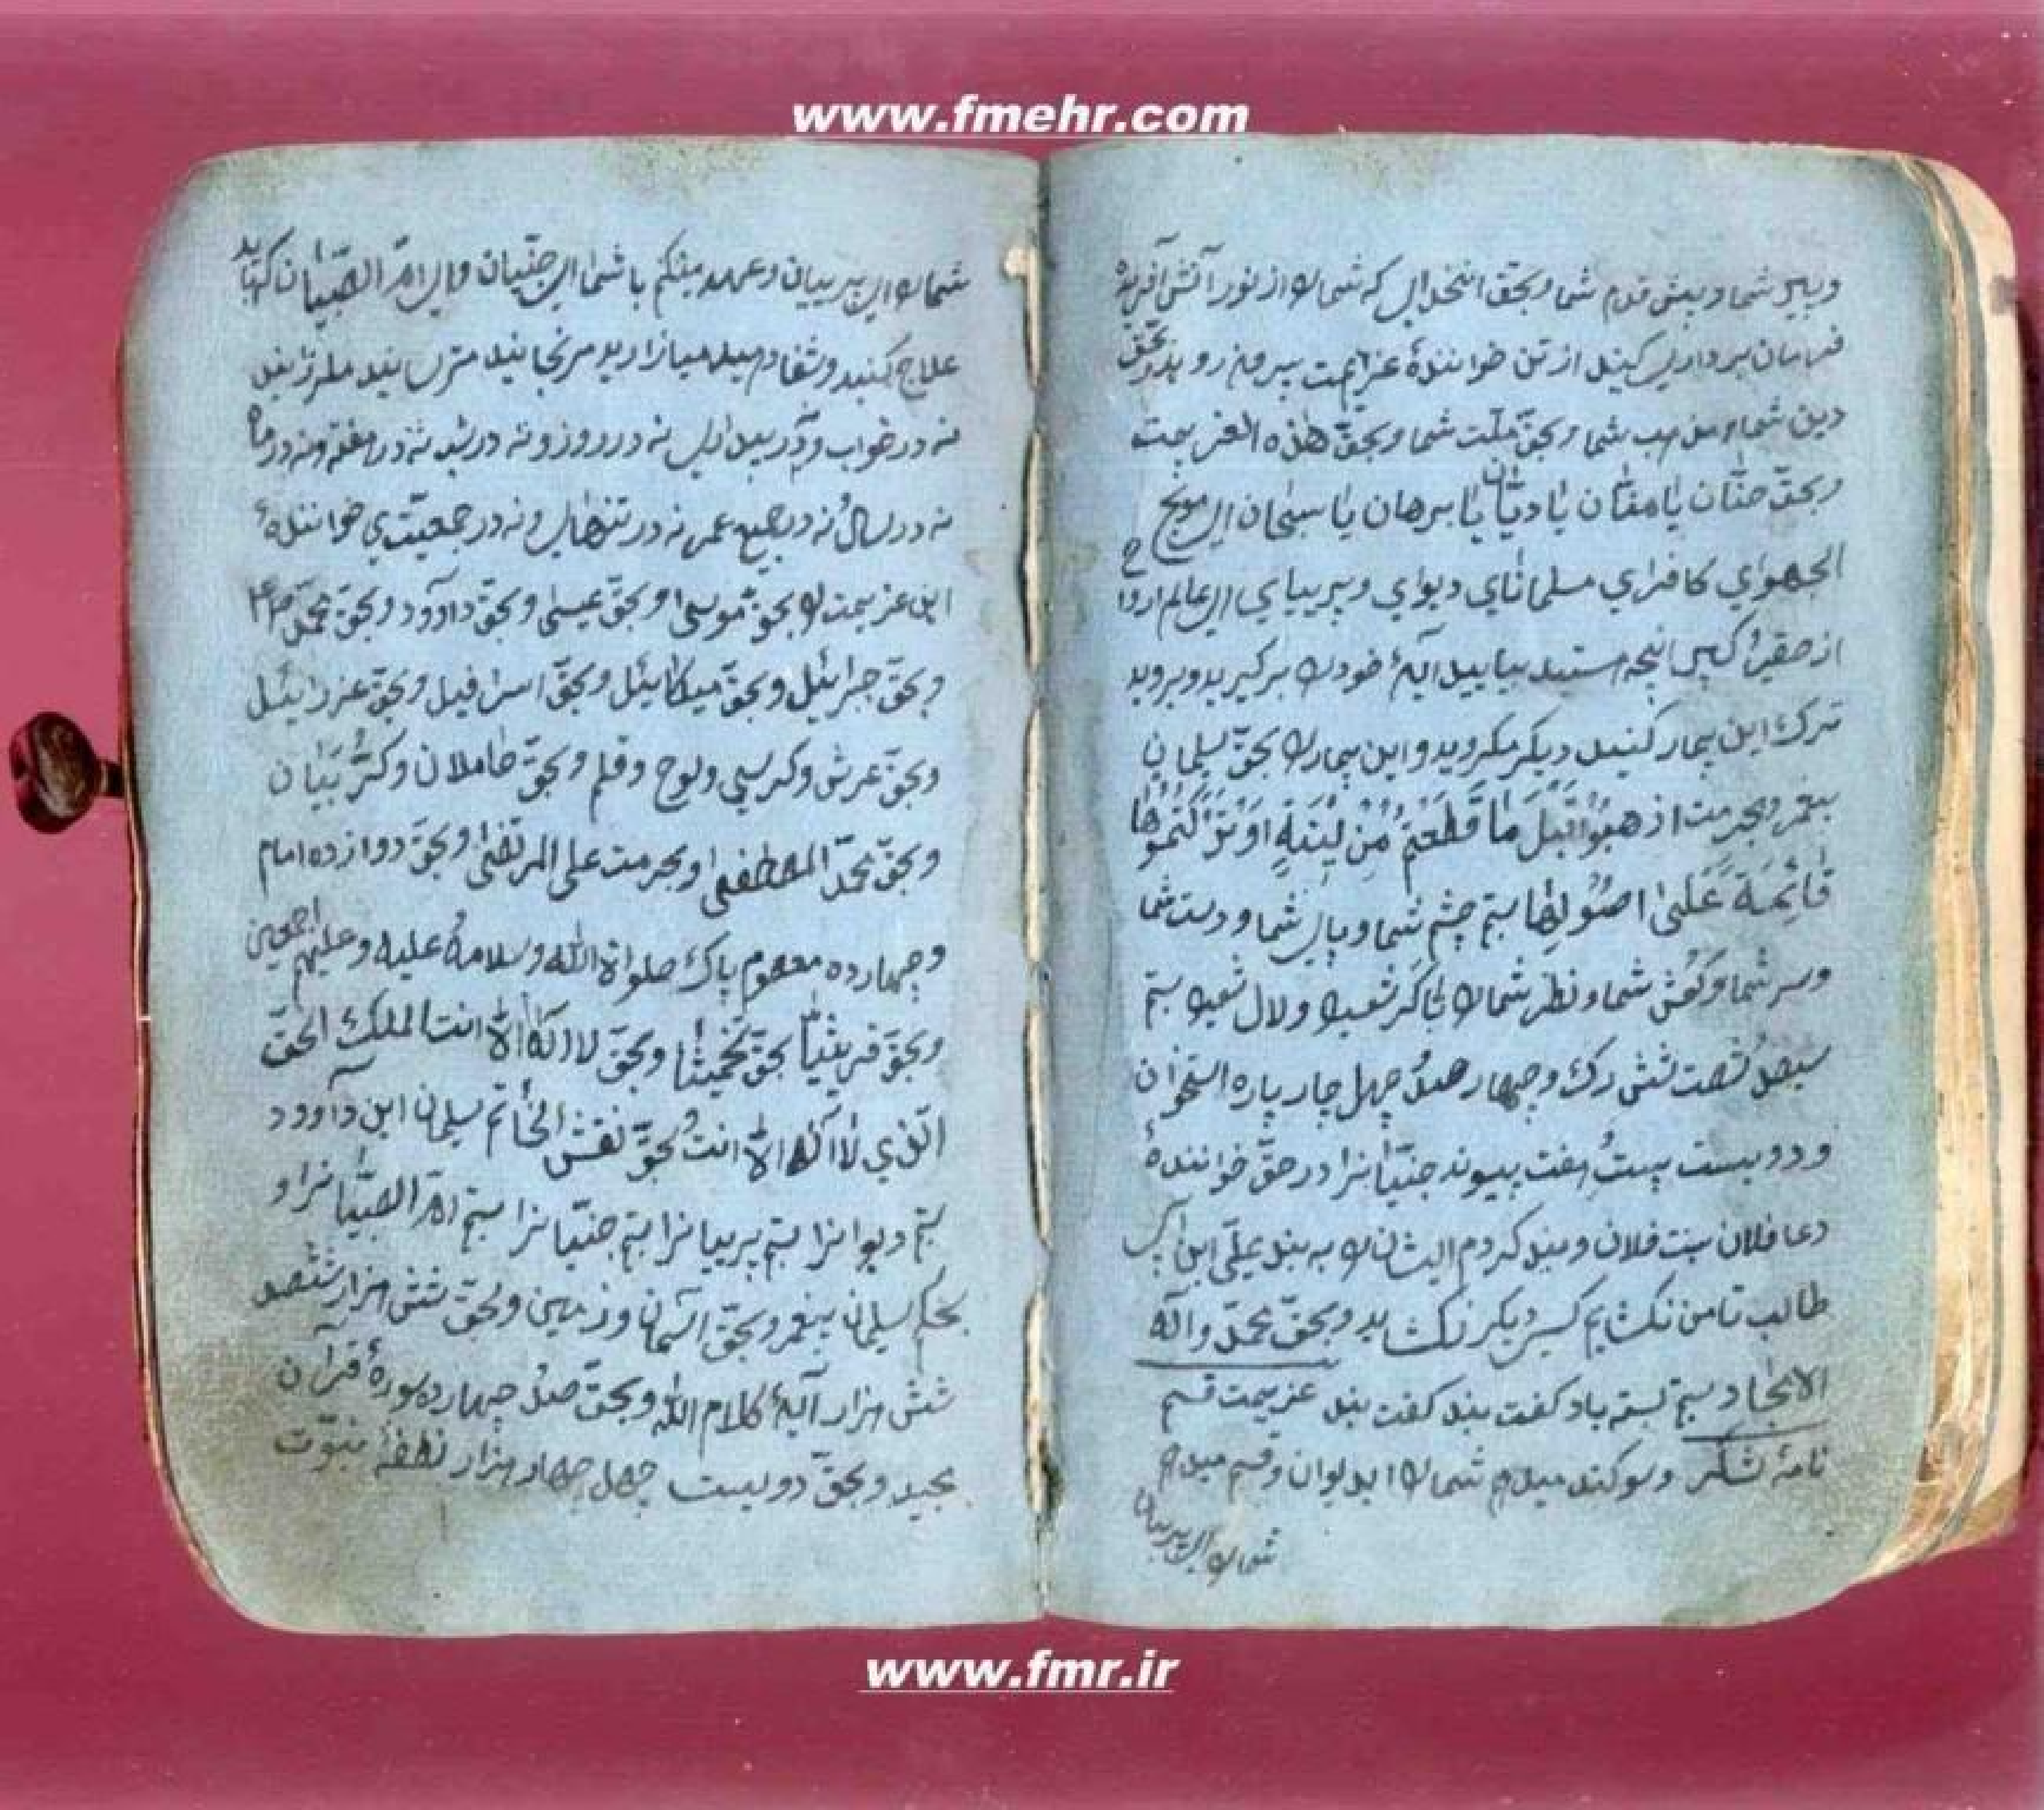 www.fmehr.com
و بپیر شما و بپیش قدم شما و بحق انخدای که شما را از نور آتش آفریده
فرمان برداری کنید از تن خوانندهٔ عزایمت بیرون روید و بحق
دین شما و مذهب شما و بحقّ ملّت شما و بحقّ هذه العزیمت
و بحقّ حنّان یا منّان یا دیّان یا برهان یا سبحان ای
کافرای مسلمانای دیوای و پریهای ای عالم ارواح
از صغیر کبیر آنچه هستید بیایید خود را برگیرید و بروید
ترک این بیمار کنید دیگر مگروید و این بیمار را بحقّ سلیمان
پیغمبر و بحرمت از مَا قَطَعْتُمْ مِنْ لِینَةٍ اَوْ تَرَكْتُمُوهَا
قَائِمَةً عَلَىٰ اُصُولِهَا بستم چشم شما و پای شما و دست شما
و سر شما و گوش شما و نظر شما را تا کر شوید و لال شوید بستم
سیصد شصت شش رگ و چهار صد چهل چار پاره استخوان
و دویست بیست هفت پیوند جنّیانرا در حقّ خوانندهٔ
دعا فلان بنت فلان و بند کردم ایشان را به بند علی ابن ابی
طالب تا من نگشایم کسی دیگر نگشاید و بحقّ محمّد و آله
الامجاد بستم بسته باد گفت بند گفت بند عزیمت قسم
نامهٔ لشکر و سوگند میدهم شما را ای دیوان و قسم میدهم
شما را ای پریان
شما را ای پریان و عهد میکنم با شما ای جنّیان و ای امّ الصّبیان که باید
علاج کنید و شفا دهید میازارید مرنجانید مترسانید ملرزانید
نه در خواب و نه در بیداری نه در روز و نه در شب نه در هفته و نه در ماه
نه در سال و نه در جمیع عمر نه در تنهایی و نه در جمعیّت خوانندهٔ
این عزیمت را بحقّ موسی و بحقّ عیسی و بحقّ داوود و بحقّ محمّد ص
و بحقّ جبرائیل و بحقّ میکائیل و بحقّ اسرافیل و بحقّ عزرائیل
و بحقّ عرش و کرسی و لوح و قلم و بحقّ حاملان و کرّوبیان
و بحقّ محمّد المصطفی و بحرمت علی المرتضی و بحقّ دوازده امام
و چهارده معصوم پاک صلوات الله و سلامه علیه و علیهم اجمعین
و بحقّ بحقّ و بحقّ لا اله الّا انت الملک الحقّ
الّذی لا اله الّا انت و بحقّ نقش الخاتم سلیمان ابن داوود
بستم دیوانرا بستم پریانرا بستم جنّیانرا بستم امّ الصّبیانرا و
بحکم سلیمان پیغمبر و بحقّ آسمان و زمین و بحقّ شش هزار ششصد
شش هزار آیهٔ کلام الله و بحقّ صد چهارده سورهٔ قرآن
مجید و بحقّ دویست چهل چهار هزار نطفهٔ نبوّت
www.fmr.ir